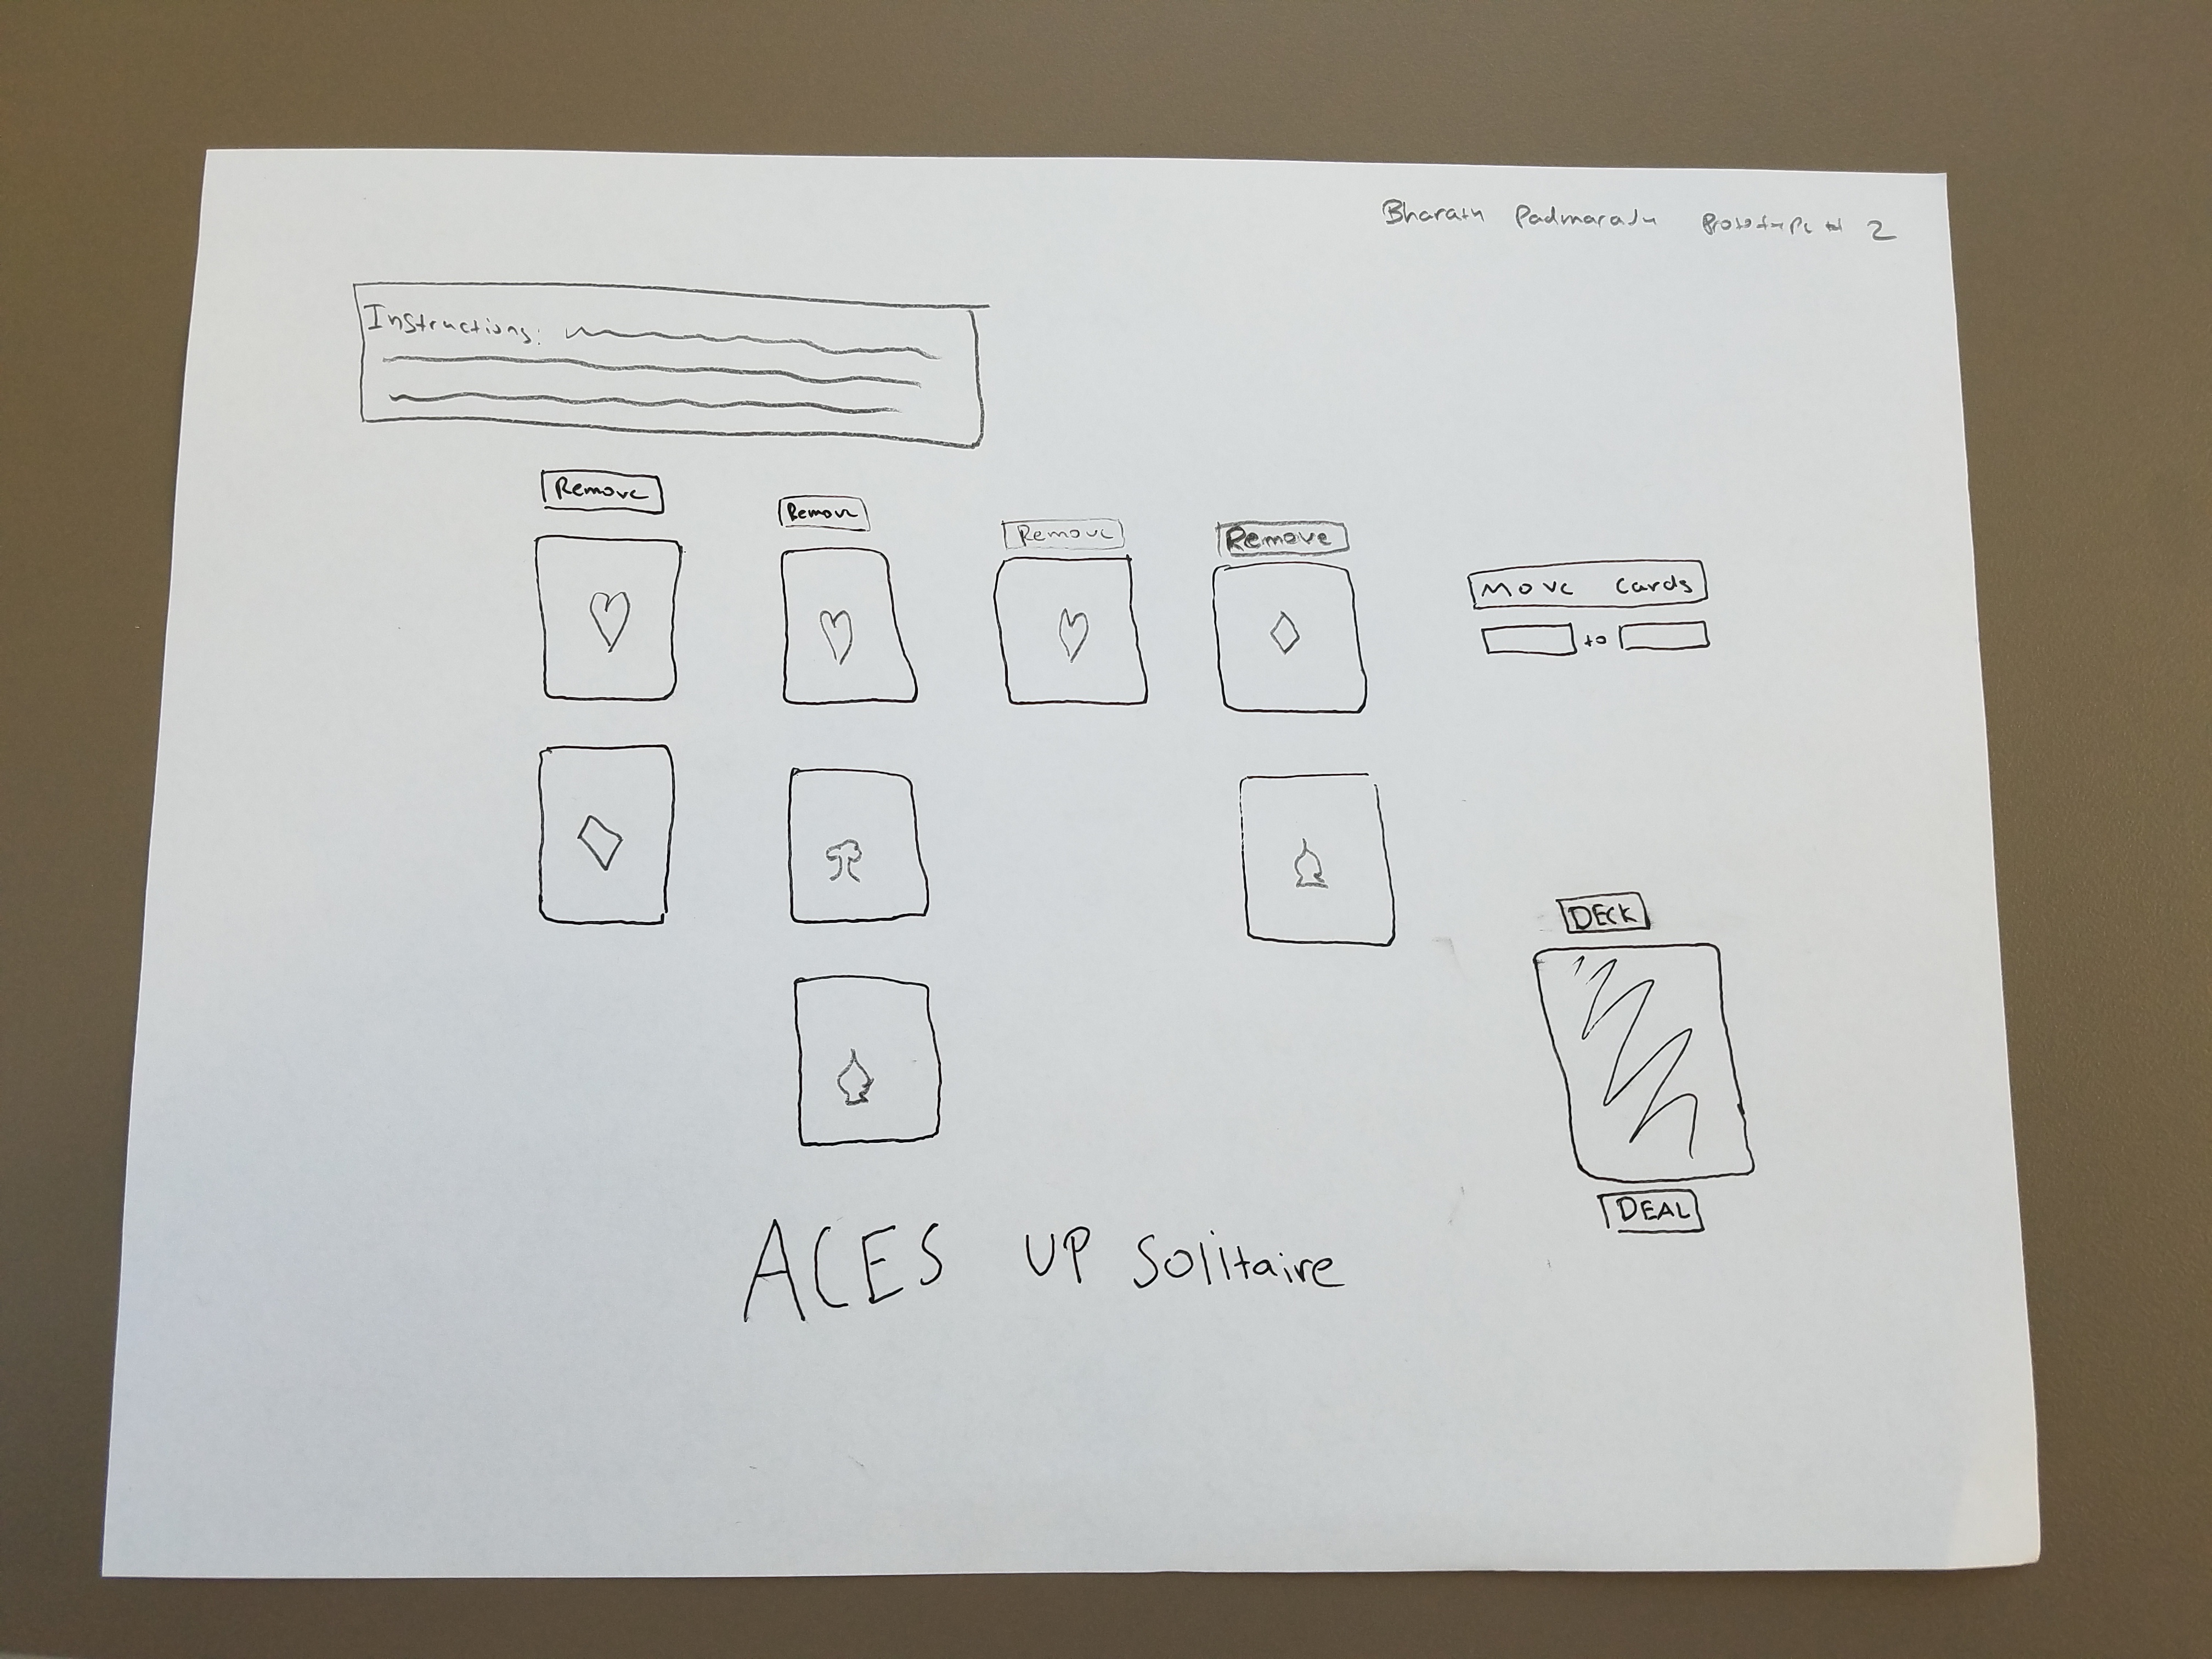 Bharath Padmaraju Prototype # 2
Instructions:
Remove
Remove
Remove
Remove
Move Cards
to
DECK
DEAL
ACES UP Solitaire